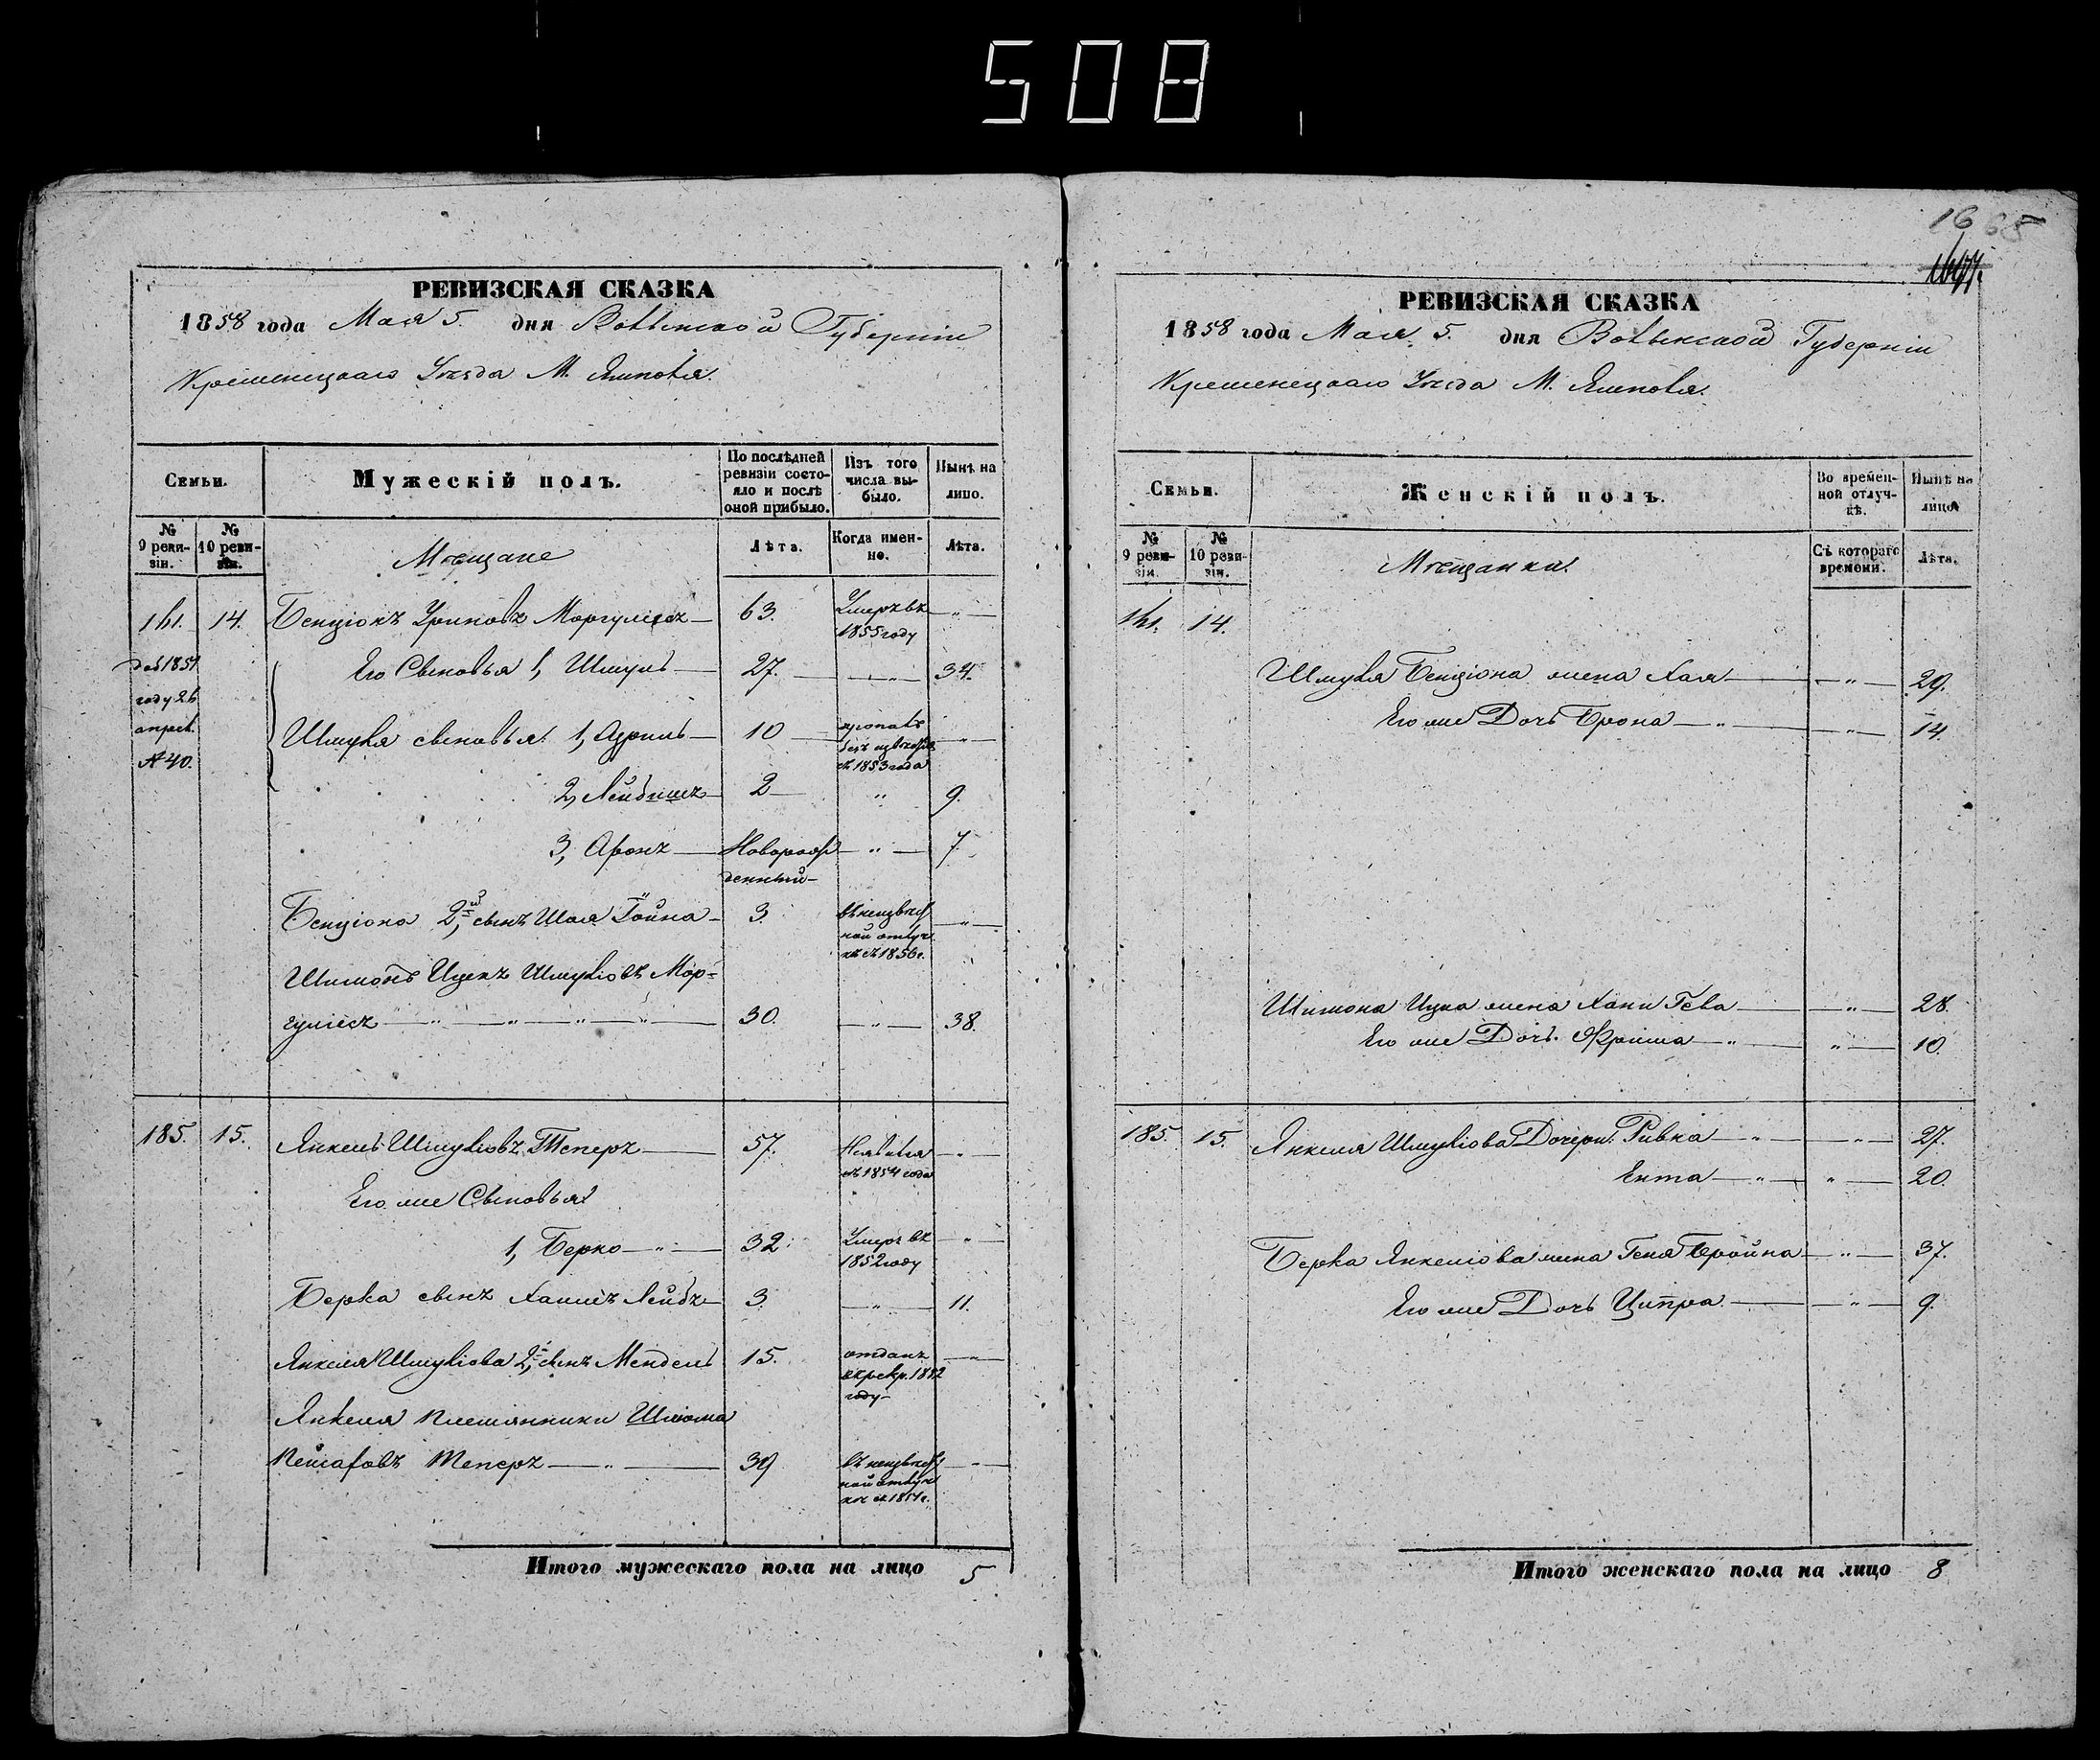 508
РЕВИЗСКАЯ СКАЗКА
1858 года Мая 5. дня Волынской Губерніи
Кременецкаго Уезда М. Ямполя.
Семьи.
Мужескій полъ.
По послѣдней ревизіи состояло и послѣ оной прибыло.
Изъ того числа выбыло.
Нынѣ на лицо.
№ 9 ревизіи.
№ 10 ревизіи.
Мещане
Лѣта.
Когда именно.
Лѣта.
161. 14. Бенціонъ Уриновъ Моргулисъ 63. Умеръ въ 1855 году
году 26
апрел.
№ 40.
Его Сыновья 1, Шмуль 27. 34.
Шмуля сыновья: 1, Азриль 10 съ 1853 года
2, Лейбишъ 2 9.
3, Аронъ Новорожденный 7
Бенціона 2й сынъ Шая Гойна 3. въ неизвестной отлучке съ 1856 г.
Шимонъ Ицекъ Шмуліовъ Мор=
гулисъ 30. 38.
185. 15. Янкель Шмуліовъ Теперъ 57. съ 1854 года
Его же Сыновья
1, Берко 32. Умеръ въ 1852 году
Берка сынъ Хаимъ Лейбъ 3. 11.
Янкеля Шмуліова 2й сынъ Мендель 15. отданъ в рекр. году
Янкеля племянники Шліома
Пейсаховъ Теперъ 39 въ неизвестной отлучке
Итого мужескаго пола на лицо 5
1665
РЕВИЗСКАЯ СКАЗКА
1858 года Мая 5. дня Волынской Губерніи
Кременецкаго Уезда М. Ямполя.
Семьи.
Женскій полъ.
Во временной отлучкѣ.
Нынѣ на лицо
№ 9 ревизіи.
№ 10 ревизіи.
Мещанки.
Съ котораго времени.
Лѣта.
161. 14.
Шмуля Бенціона жена Хая 29.
Его же Дочь Брона 14.
Шимона Ицка жена Хани Гева 28.
Его же Дочь Фрима 10.
185. 15. Янкеля Шмуліова Дочери: Ривка 27.
Ента 20.
Берка Янкеліова жена Геня Бройна 37.
Его же Дочь Ципра 9.
Итого женскаго пола на лицо 8